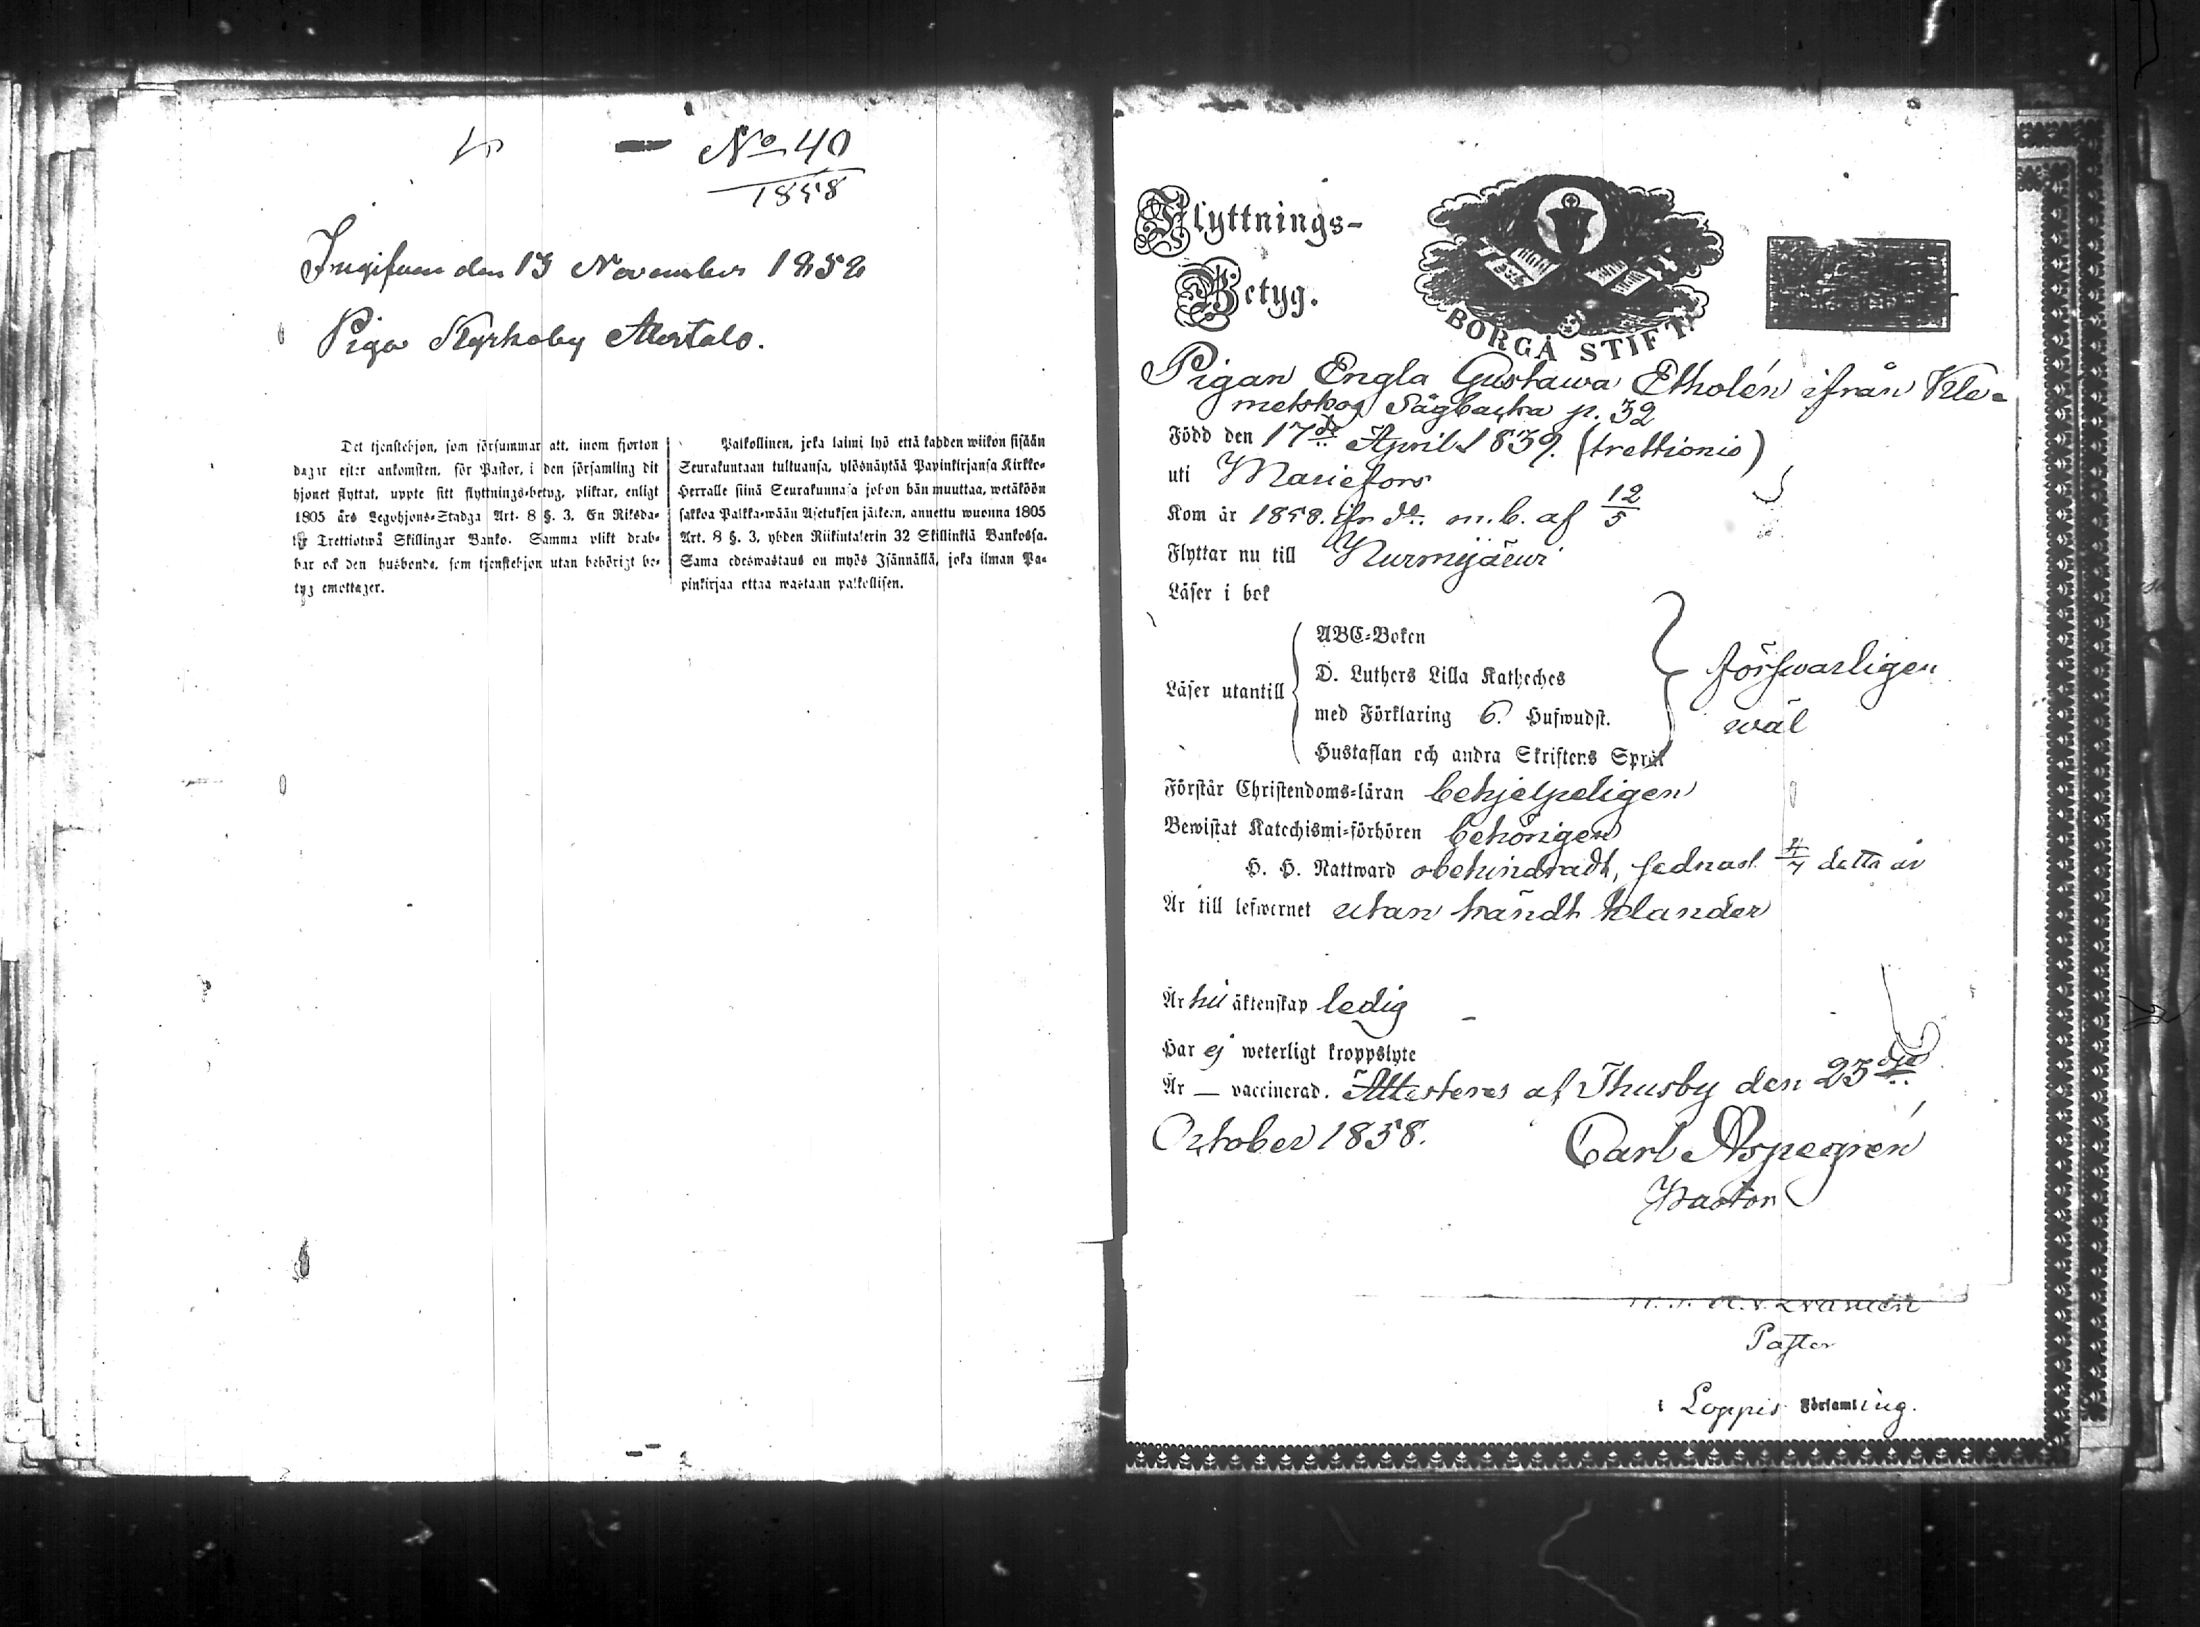 No 40
1858
Ingifven den 13 November 1858
Piga Kyrkoby Alertalo.
Det tjenstehjon, som försummar att, inom fjorton
dagar efter ankomsten, för Pastor, i den församling dit
hjonet flyttat, uppte sitt flyttnings-betyg, pliktar, enligt
1805 års Legohjons-Stadga Art. 8 §. 3. En Riksda-
ler Trettiotwå Skillingar Banko. Samma plikt drab-
bar ock den husbonde, som tjenstehjon utan behörigt be-
tyg emottager.
Palkollinen, joka laimi lyö että kahden wiikon sisään
Seurakuntaan tultuansa, ylösnäytää Papinkirjansa Kirkko-
Herralle siinä Seurakunnasa johon hän muuttaa, wetäköön
sakkoa Palkka-wään Asetuksen jälkeen, annettu wuonna 1805
Art. 8 §. 3, yhden Riikintalerin 32 Skillinkiä Bankossa.
Sama edeswastaus on myös Isännällä, joka ilman Pa-
pinkirjaa ottaa wastaan palkollisen.
Flyttnings-
Betyg.
BORGÅ STIFT.
Pigan Engla Gustawa Etholén ifrån Kle-
metskog Sågbacka p. 32
Född den 17de April 1839. (trettionio)
uti Mariefors
Kom år 1858. ifr do. m.b. af 12/5
Flyttar nu till Nurmijärvi
Läser i bok
Läser utantill
ABC-Boken
D. Luthers Lilla Katheches
med Förklaring 6. Hufwudst.
Hustaflan och andra Skriftens Språk
försvarligen
wäl
Förstår Christendoms-läran behjelpeligen
Bewistat Katechismi-förhören behörigen
H. H. Nattward obehindradt, sednast 4/7 detta år
Är till lefwernet utan kändt klander
Är till äktenskap ledig
Har ej weterligt kroppslyte
Är — vaccinerad. Attesteres af Thusby den 23dje
October 1858.
Carl Aspegrén
Pastor
Pastor
i Loppis Församling.